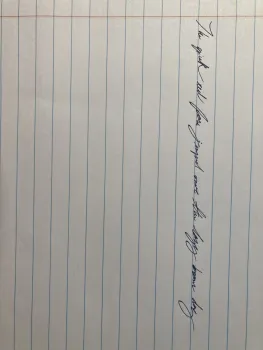 The quick red fox jumped over the lazy brown dog